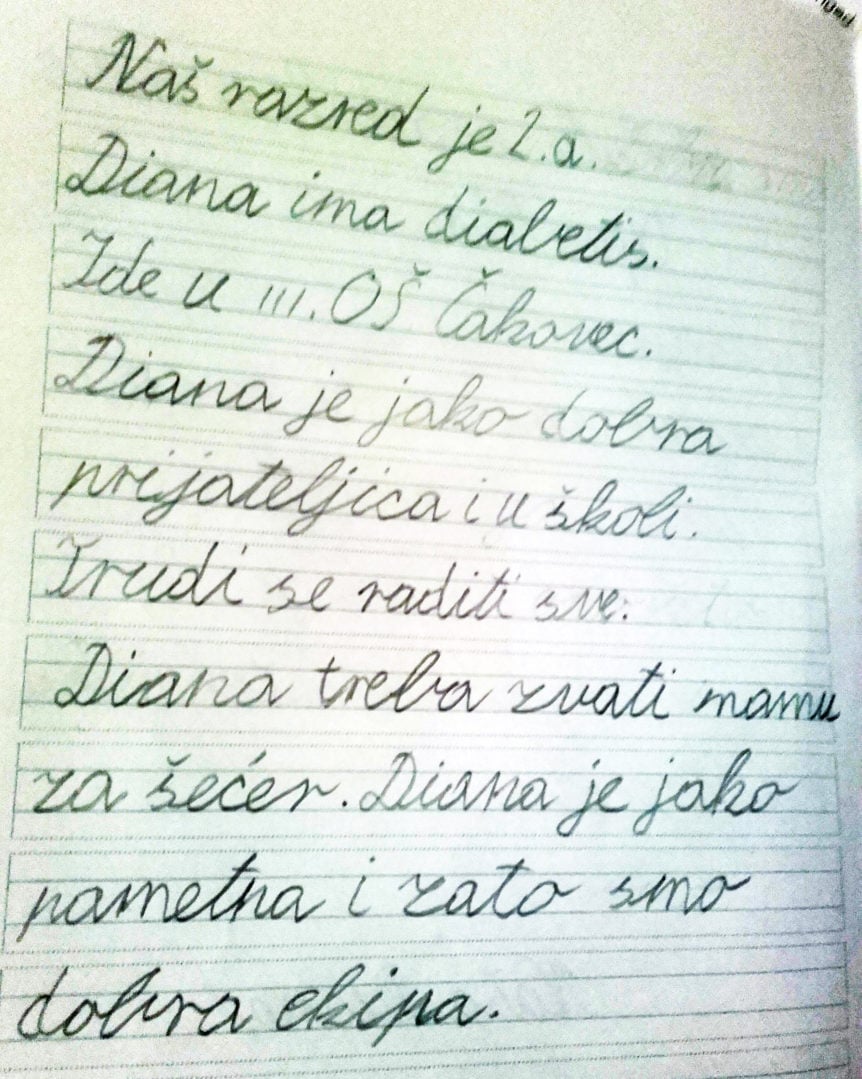 Naš razred je 2.a.
Diana ima diabetis.
Ide u III. OŠ Čakovec.
Diana je jako dobra
prijateljica i u školi.
Trudi se raditi sve.
Diana treba zvati mamu
za šećer. Diana je jako
pametna i zato smo
dobra ekipa.